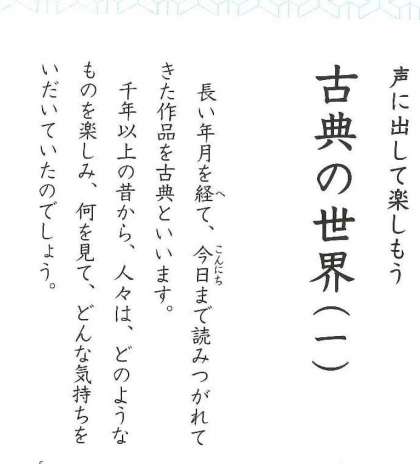 声に出して楽しもう
古典の世界（一）
長い年月を経て、今日まで読みつがれて
きた作品を古典といいます。
千年以上の昔から、人々は、どのような
ものを楽しみ、何を見て、どんな気持ちを
いだいていたのでしょう。
へ
こんにち